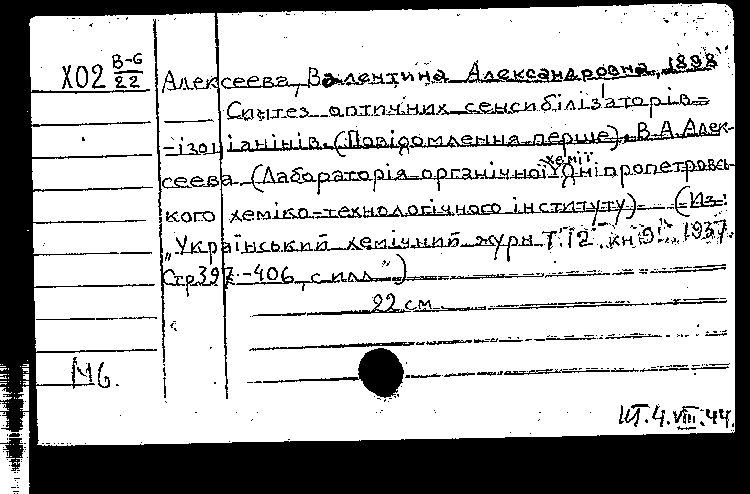 Х02 В-6/22
Алексеева, Валентина Александровна, 1898
Синтез оптичних сенсибілізаторів=
-ізоціанінів. (Повідомлення перше). В.А. Алек-
сеева. (Лабораторія органічної хемії Дніпропетровсь-
кого хеміко-технологічного інституту) (Из:
"Український хемічний журн Т. 12 кн 9. 1937.
Стр 397-406, с илл.")
22 см.
М6.
ШТ. 4. VIII. 44.